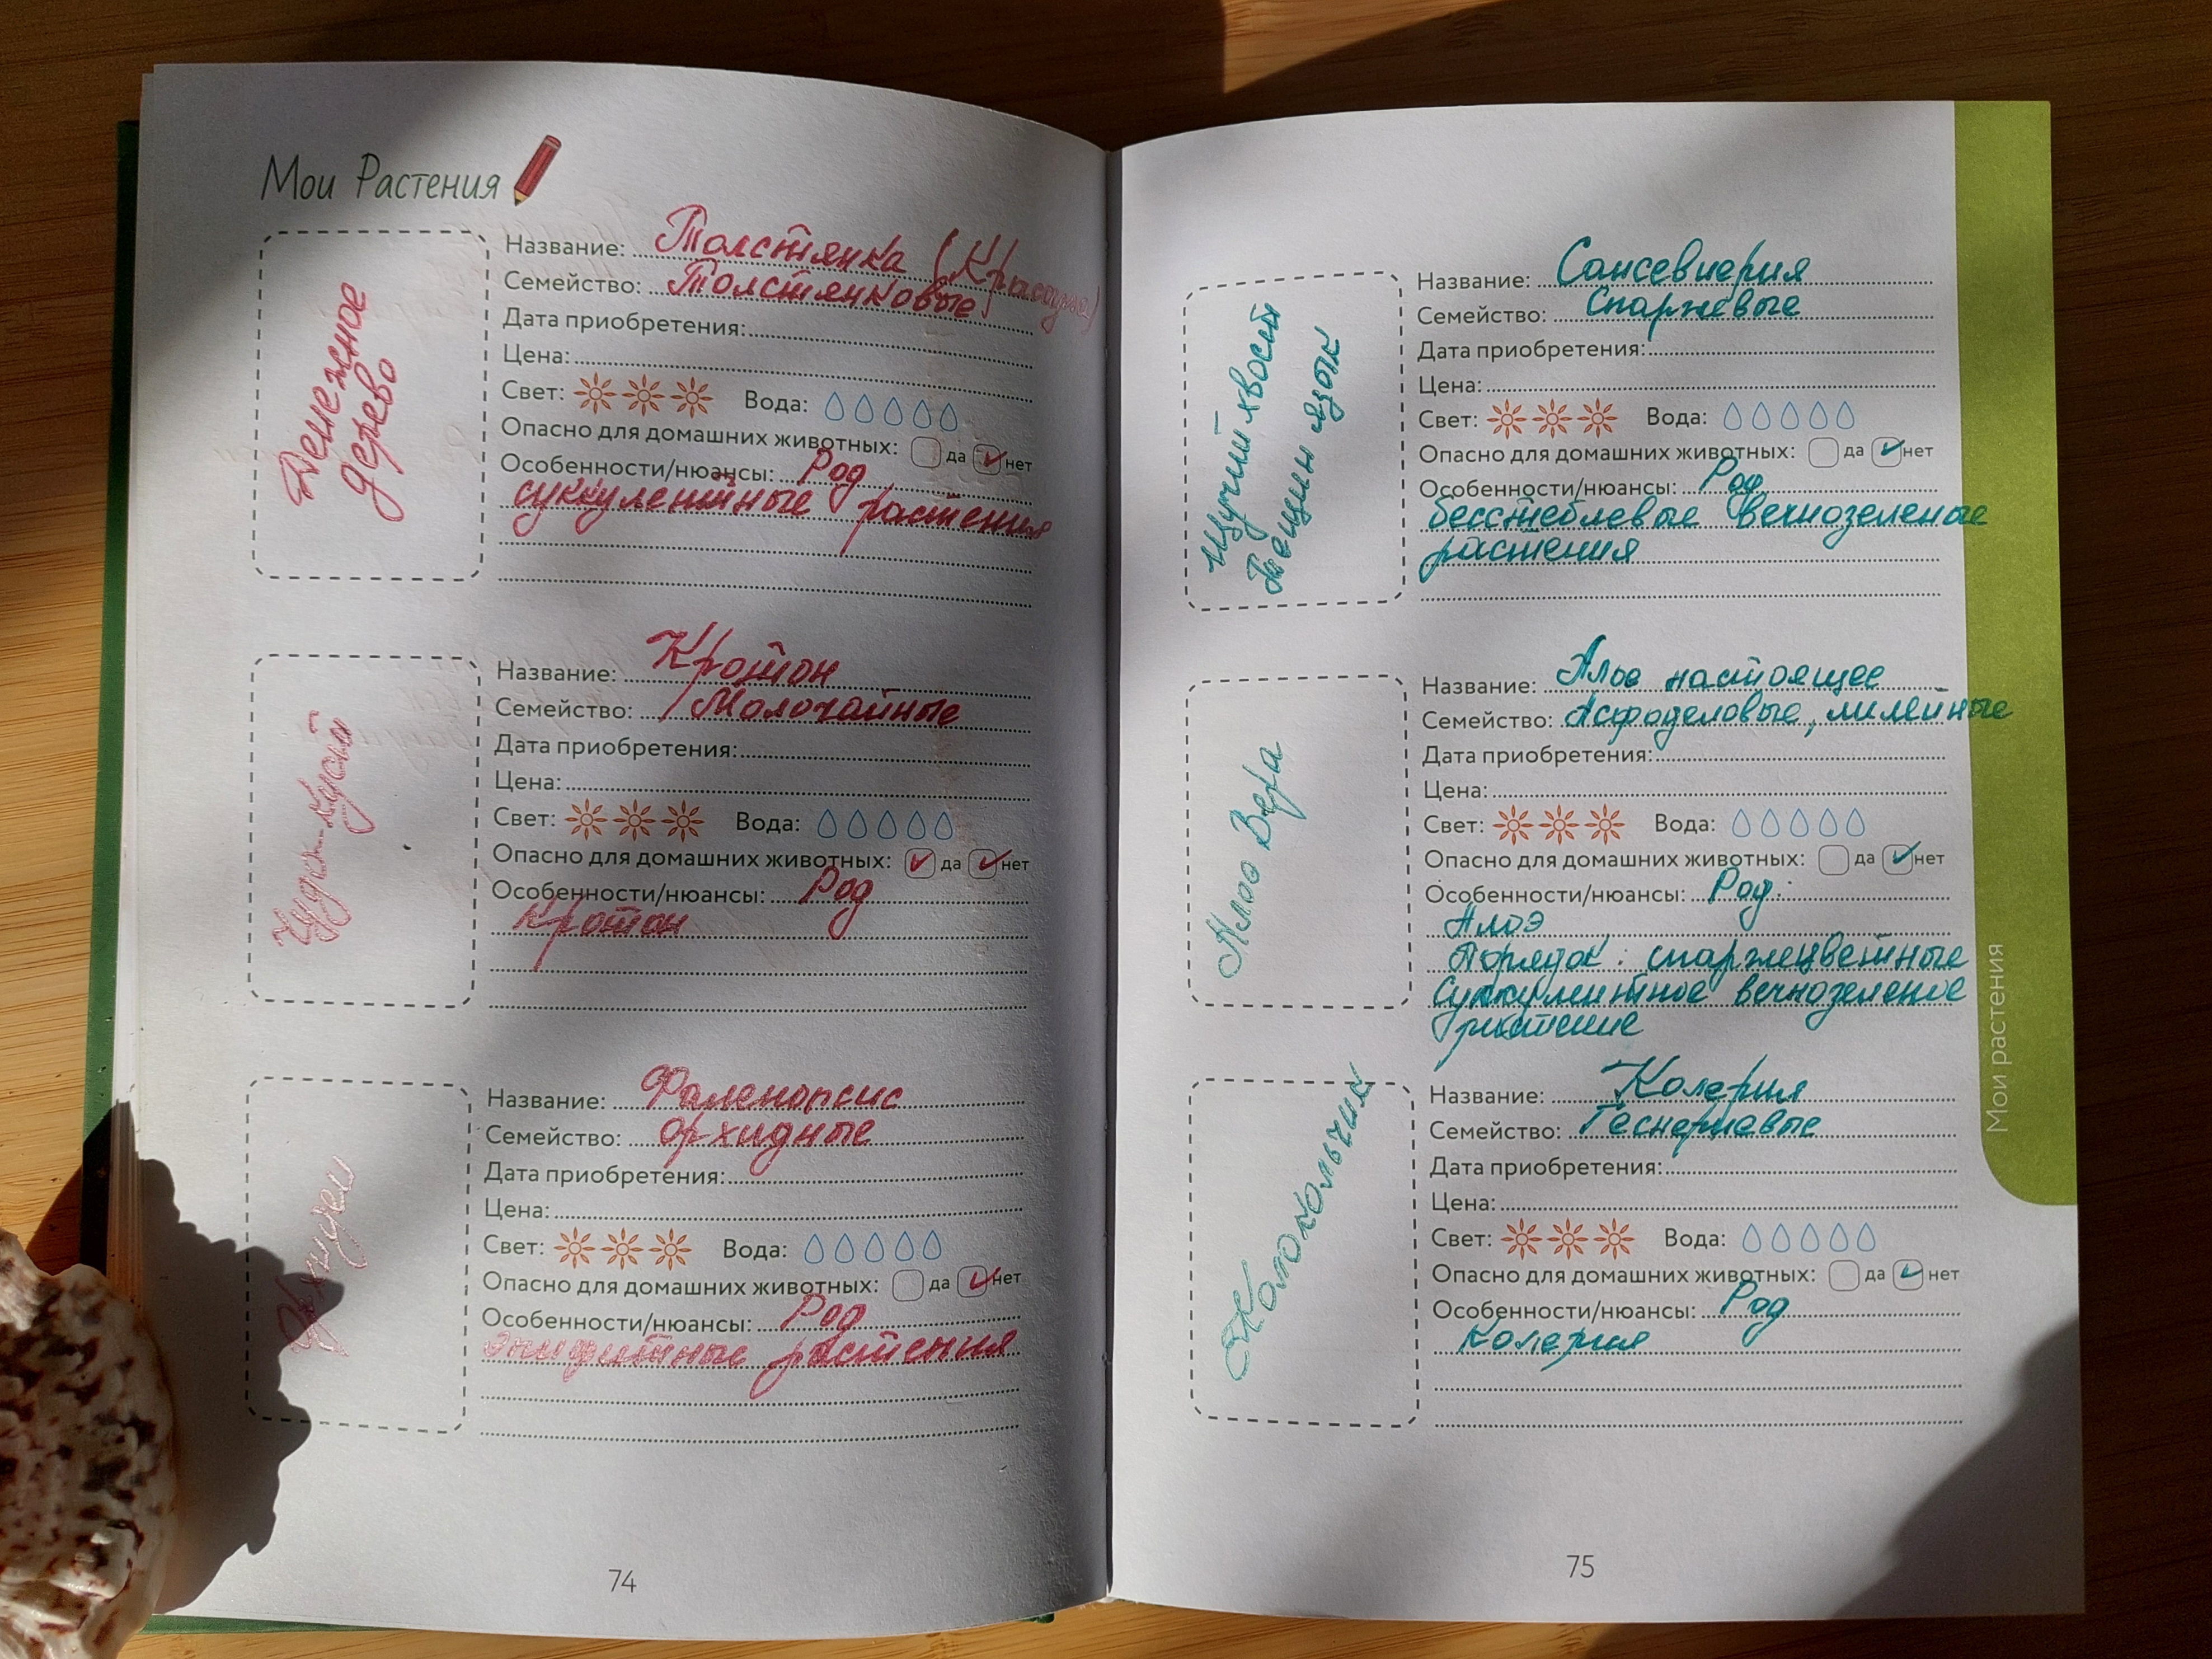 Мои Растения
Денежное
дерево
Название: Толстянка (Красула)
Семейство: Толстянковые
Дата приобретения:
Цена:
Свет: Вода:
Опасно для домашних животных: да нет
Особенности/нюансы: Род
суккулентные растения
Чудо-куст
Название: Кротон
Семейство: Молочайные
Дата приобретения:
Цена:
Свет: Вода:
Опасно для домашних животных: да нет
Особенности/нюансы: Род
Кротон
Орхидея
Название: Фаленопсис
Семейство: Орхидные
Дата приобретения:
Цена:
Свет: Вода:
Опасно для домашних животных: да нет
Особенности/нюансы: Род
Эпифитные растения
74
Щучий хвост
Тещин язык
Название: Сансевиерия
Семейство: Спаржевые
Дата приобретения:
Цена:
Свет: Вода:
Опасно для домашних животных: да нет
Особенности/нюансы: Род
бесстеблевые вечнозеленые
растения
Алоэ Вера
Название: Алое настоящее
Семейство: Асфоделовые, лилейные
Дата приобретения:
Цена:
Свет: Вода:
Опасно для домашних животных: да нет
Особенности/нюансы: Род:
Алоэ
Порядок: спаржецветные
Суккулентное вечнозеленое
растение
Колокольчик
Название: Колерия
Семейство: Геснериевые
Дата приобретения:
Цена:
Свет: Вода:
Опасно для домашних животных: да нет
Особенности/нюансы: Род
Колерия
75
Мои растения